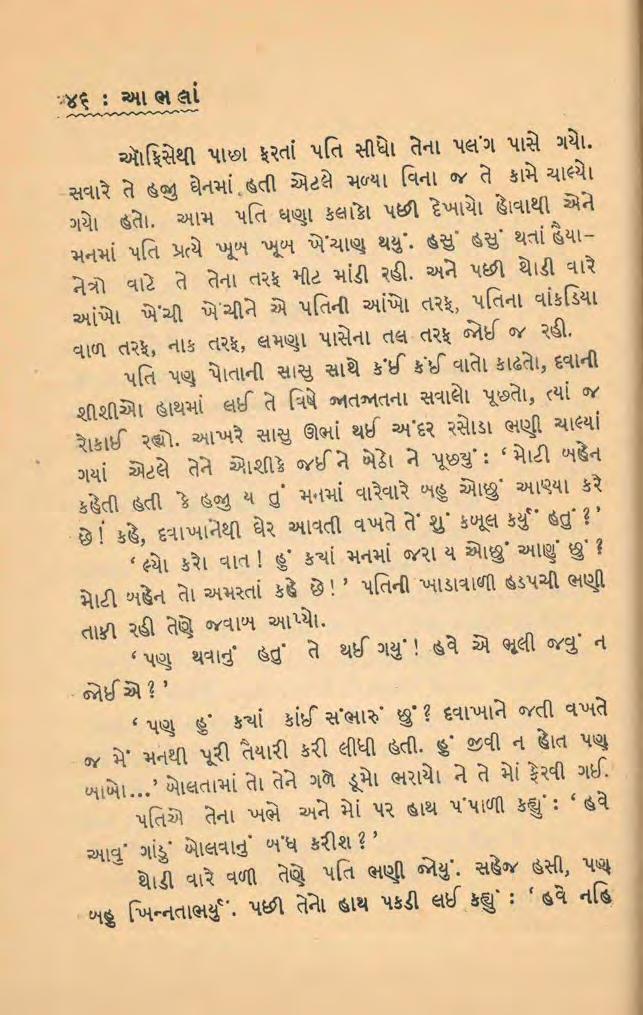 ૪૬ : આ ભ લાં
ઑફિસેથી પાછા ફરતાં પતિ સીધો તેના પલંગ પાસે ગયો.
સવારે તે હજી ઘેનમાં હતી એટલે મળ્યા વિના જ તે કામે ચાલ્યો
ગયો હતો. આમ પતિ ઘણા કલાકો પછી દેખાયો હોવાથી એને
મનમાં પતિ પ્રત્યે ખૂબ ખૂબ ખેંચાણ થયું. હસું હસું થતાં હૈયા–
નેત્રો વાટે તે તેના તરફ મીટ માંડી રહી. અને પછી થોડી વારે
આંખો ખેંચી ખેંચીને એ પતિની આંખો તરફ, પતિના વાંકડિયા
વાળ તરફ, નાક તરફ, લમણા પાસેના તલ તરફ જોઈ જ રહી.
પતિ પણ પોતાની સાસુ સાથે કંઈ કંઈ વાતો કાઢતો, દવાની
શીશીઓ હાથમાં લઈ તે વિષે જાતજાતના સવાલો પૂછતો, ત્યાં જ
રોકાઈ રહ્યો. આખરે સાસુ ઊભાં થઈ અંદર રસોડા ભણી ચાલ્યાં
ગયાં એટલે તેને ઓશીકે જઈ ને બેઠો ને પૂછ્યું : ‘ મોટી બહેન
કહેતી હતી કે હજી ય તું મનમાં વારેવારે બહુ ઓછું આણ્યા કરે
છે! કહે, દવાખાનેથી ઘેર આવતી વખતે તેં શું કબૂલ કર્યું હતું ?’
‘ લ્યો કરો વાત ! હું ક્યાં મનમાં જરા ય ઓછું આણું છું ?
મોટી બહેન તો અમરતાં કહે છે !’ પતિની ખાડાવાળી હડપચી ભણી
તાકી રહી તેણે જવાબ આપ્યો.
‘ પણ થવાનું હતું તે થઈ ગયું ! હવે એ ભૂલી જવું ન
જોઈ એ ?’
‘ પણ હું ક્યાં કાંઈ સંભારું છું ? દવાખાને જતી વખતે
જ મેં મનથી પૂરી તૈયારી કરી લીધી હતી. હું જીવી ન હોત પણ
બાબો...’ બોલતામાં તો તેને ગળે ડૂમો ભરાયો ને તે મોં ફેરવી ગઈ.
પતિએ તેના ખભે અને મોં પર હાથ પંપાળી કહ્યું : ‘ હવે
આવું ગાંડું બોલવાનું બંધ કરીશ ?’
થોડી વારે વળી તેણે પતિ ભણી જોયું. સહેજ હસી, પણ
બહુ ખિન્નતાભર્યું. પછી તેનો હાથ પકડી લઈ કહ્યું : ‘ હવે નહિ